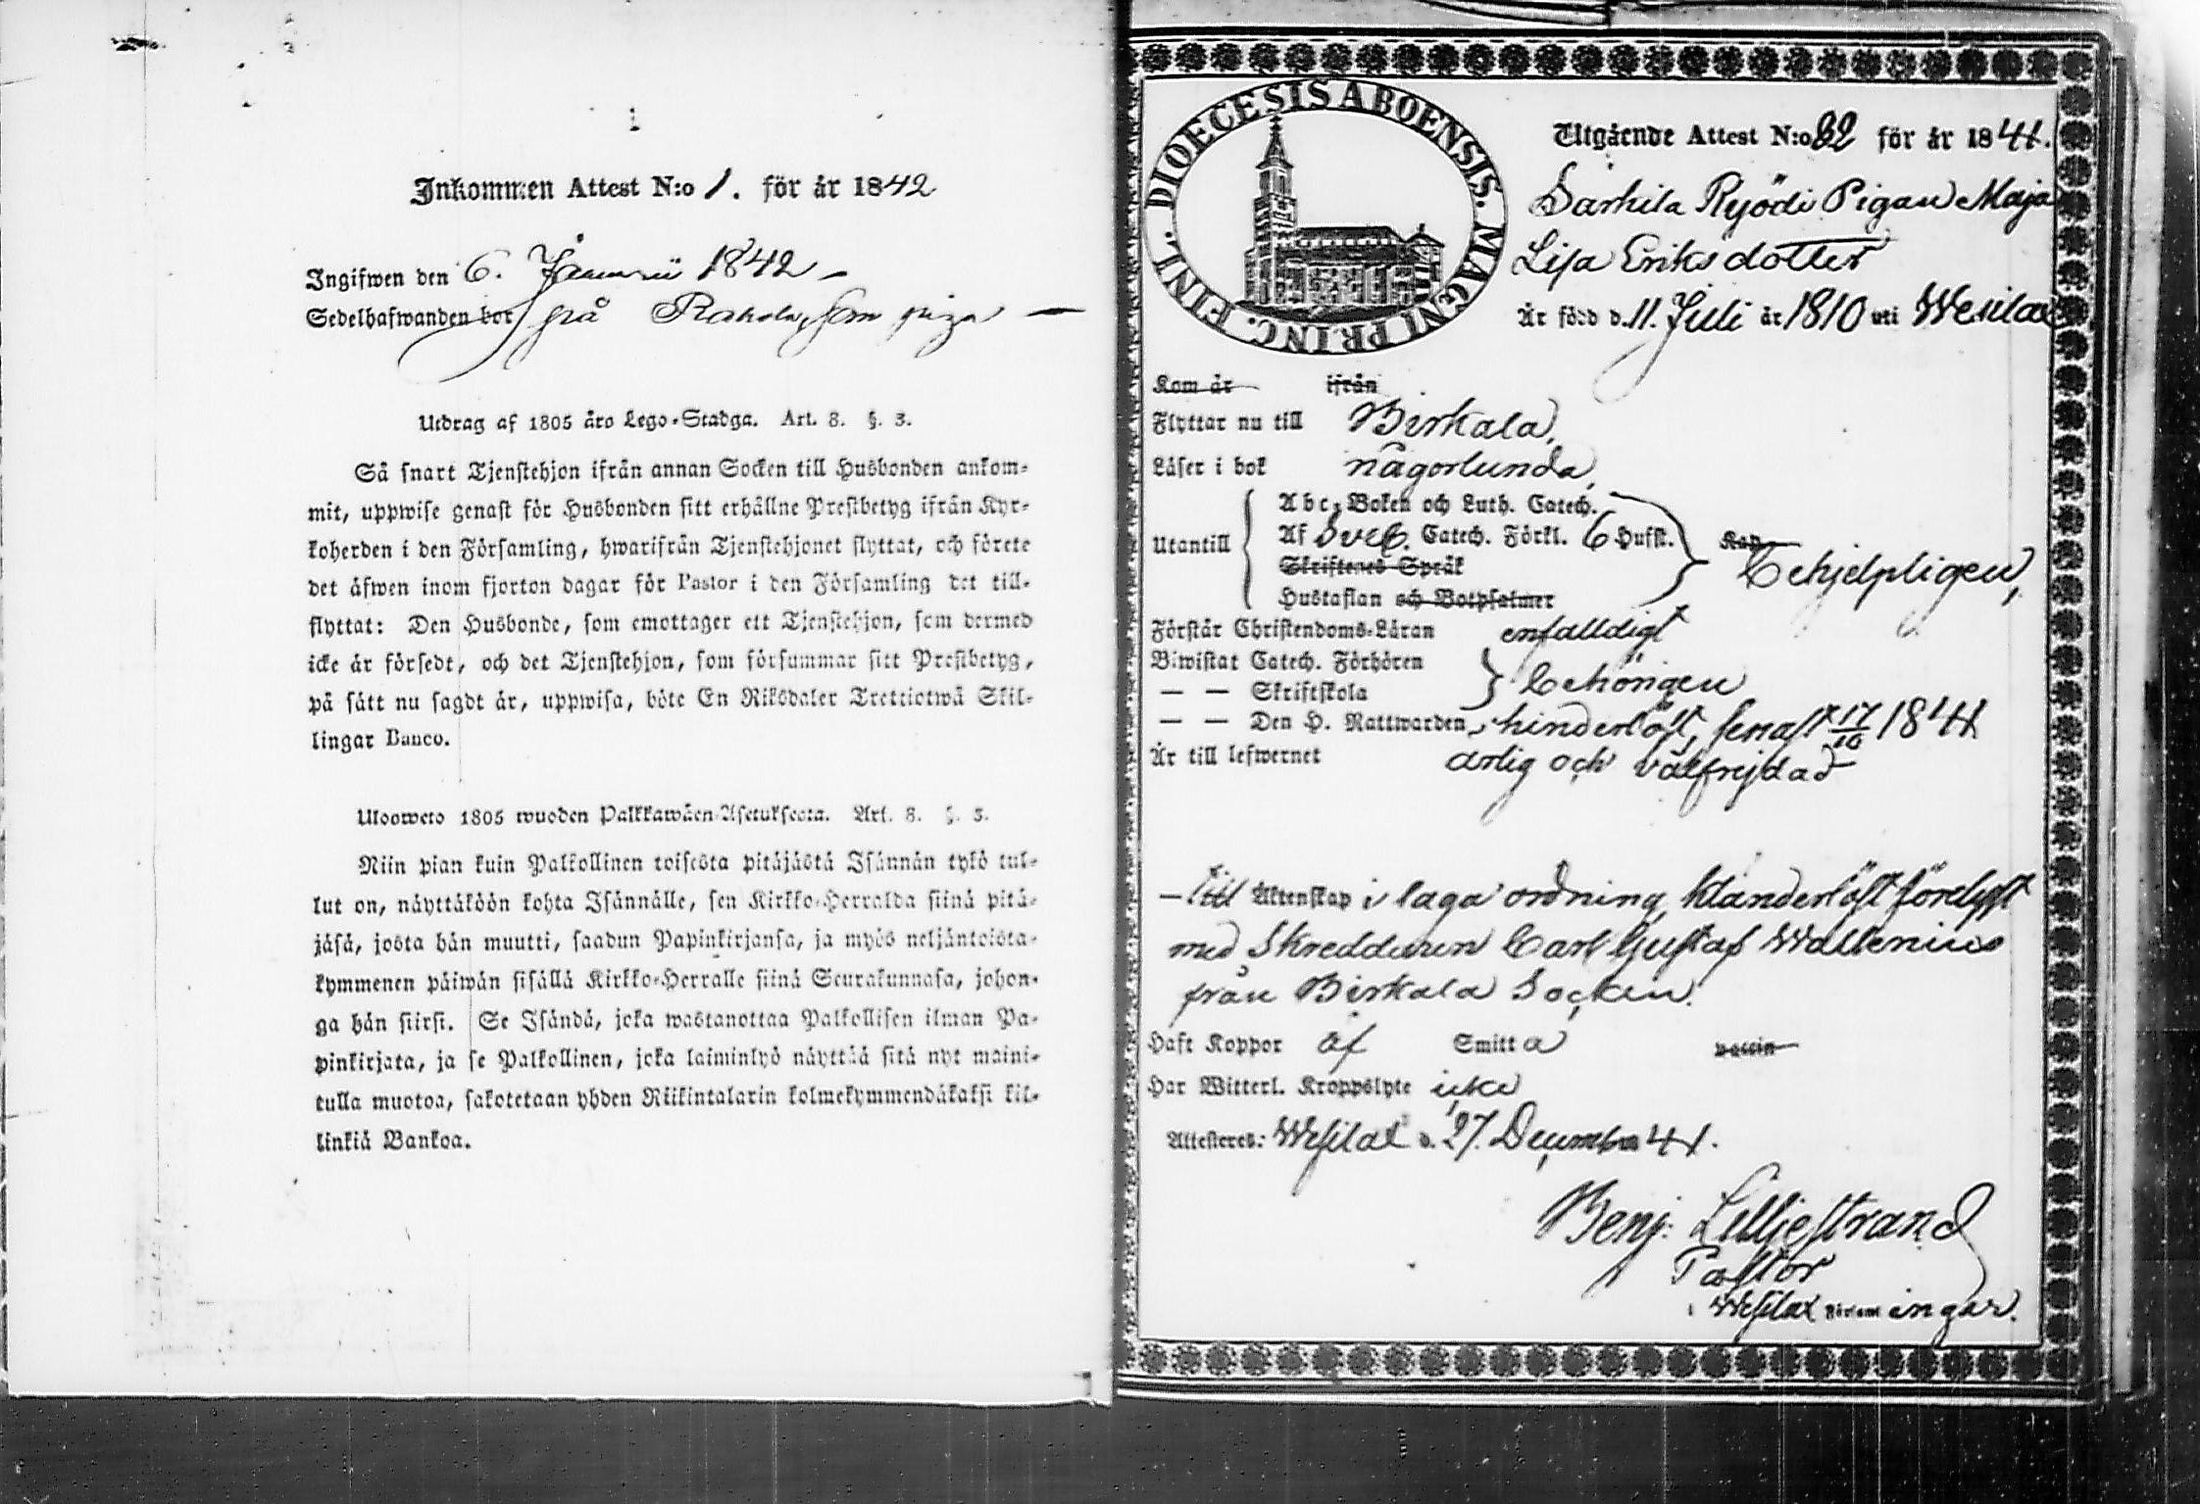 1
Inkommen Attest N:o 1. för år 1842
Ingifwen den 6. Januarii 1842 –
Sedelhafwanden bor på Rahola, som piga —
Utdrag af 1805 års Lego-Stadga. Art. 8. §. 3.
Så snart Tjenstehjon ifrån annan Socken till Husbonden ankom-
mit, uppwise genast för Husbonden sitt erhållne Prestbetyg ifrån Kyr-
koherden i den Församling, hwarifrån Tjenstehjonet flyttat, och förete
det äfwen inom fjorton dagar för Pastor i den Församling det till-
flyttat: Den Husbonde, som emottager ett Tjenstehjon, som dermed
icke är försedt, och det Tjenstehjon, som försummar sitt Prestbetyg,
på sätt nu sagdt är, uppwisa, böte En Riksdaler Trettiotwå Skil-
lingar Banco.
Uloosweto 1805 wuoden Palkkawäen-Asetuksesta. Art. 8. §. 3.
Niin pian kuin Palkollinen toisesta pitäjästä Isännän tykö tul-
lut on, näyttäköön kohta Isännälle, sen Kirkko-Herralda siinä pitä-
jäsä, josta hän muutti, saadun Papinkirjansa, ja myös neljäntoista-
kymmenen päiwän sisällä Kirkko-Herralle siinä Seurakunnasa, johon-
ga hän siirsi. Se Isändä, joka wastanottaa Palkollisen ilman Pa-
pinkirjata, ja se Palkollinen, joka laiminlyö näyttää sitä nyt maini-
tulla muotoa, sakotetaan yhden Riikintalarin kolmekymmendäkaksi kil-
linkiä Bankoa.
DIOECESIS ABOENSIS. MAGNI PRINC. FINL.
Utgående Attest N:o 82 för år 1841.
Särkila Ryödi Pigan Maja
Lisa Eriksdotter
Är född d. 11. Juli år 1810 uti Wesilax
Kom år ifrån
Flyttar nu till Birkala,
Läser i bok någorlunda,
Utantill
Abc-Boken och Luth. Catech.
Af Sveb. Catech. Förkl. 6 Hufst.
Skriftenes Språk
Hustaflan och Botpsalmer
Kan
behjelpligen,
Förstår Christendoms-Läran enfalldigt
Biwistat Catech. Förhören
— — Skriftskola
behörigen
— — Den H. Nattwarden, hinderlöst, senast 17/10 1841
Är till lefwernet ärlig och välfrejdad
– Till Äktenskap i laga ordning, klanderlöst förelyst
med Skreddaren Carl Gustaf Wallenius
från Birkala Socken.
Haft Koppor af Smitta vaccin
Har Witterl. Kroppslyte icke
Attesteres: Wesilax d. 27. December 41.
Benj: Lilljestrand
Pastor
i Wesilax Församlingar.